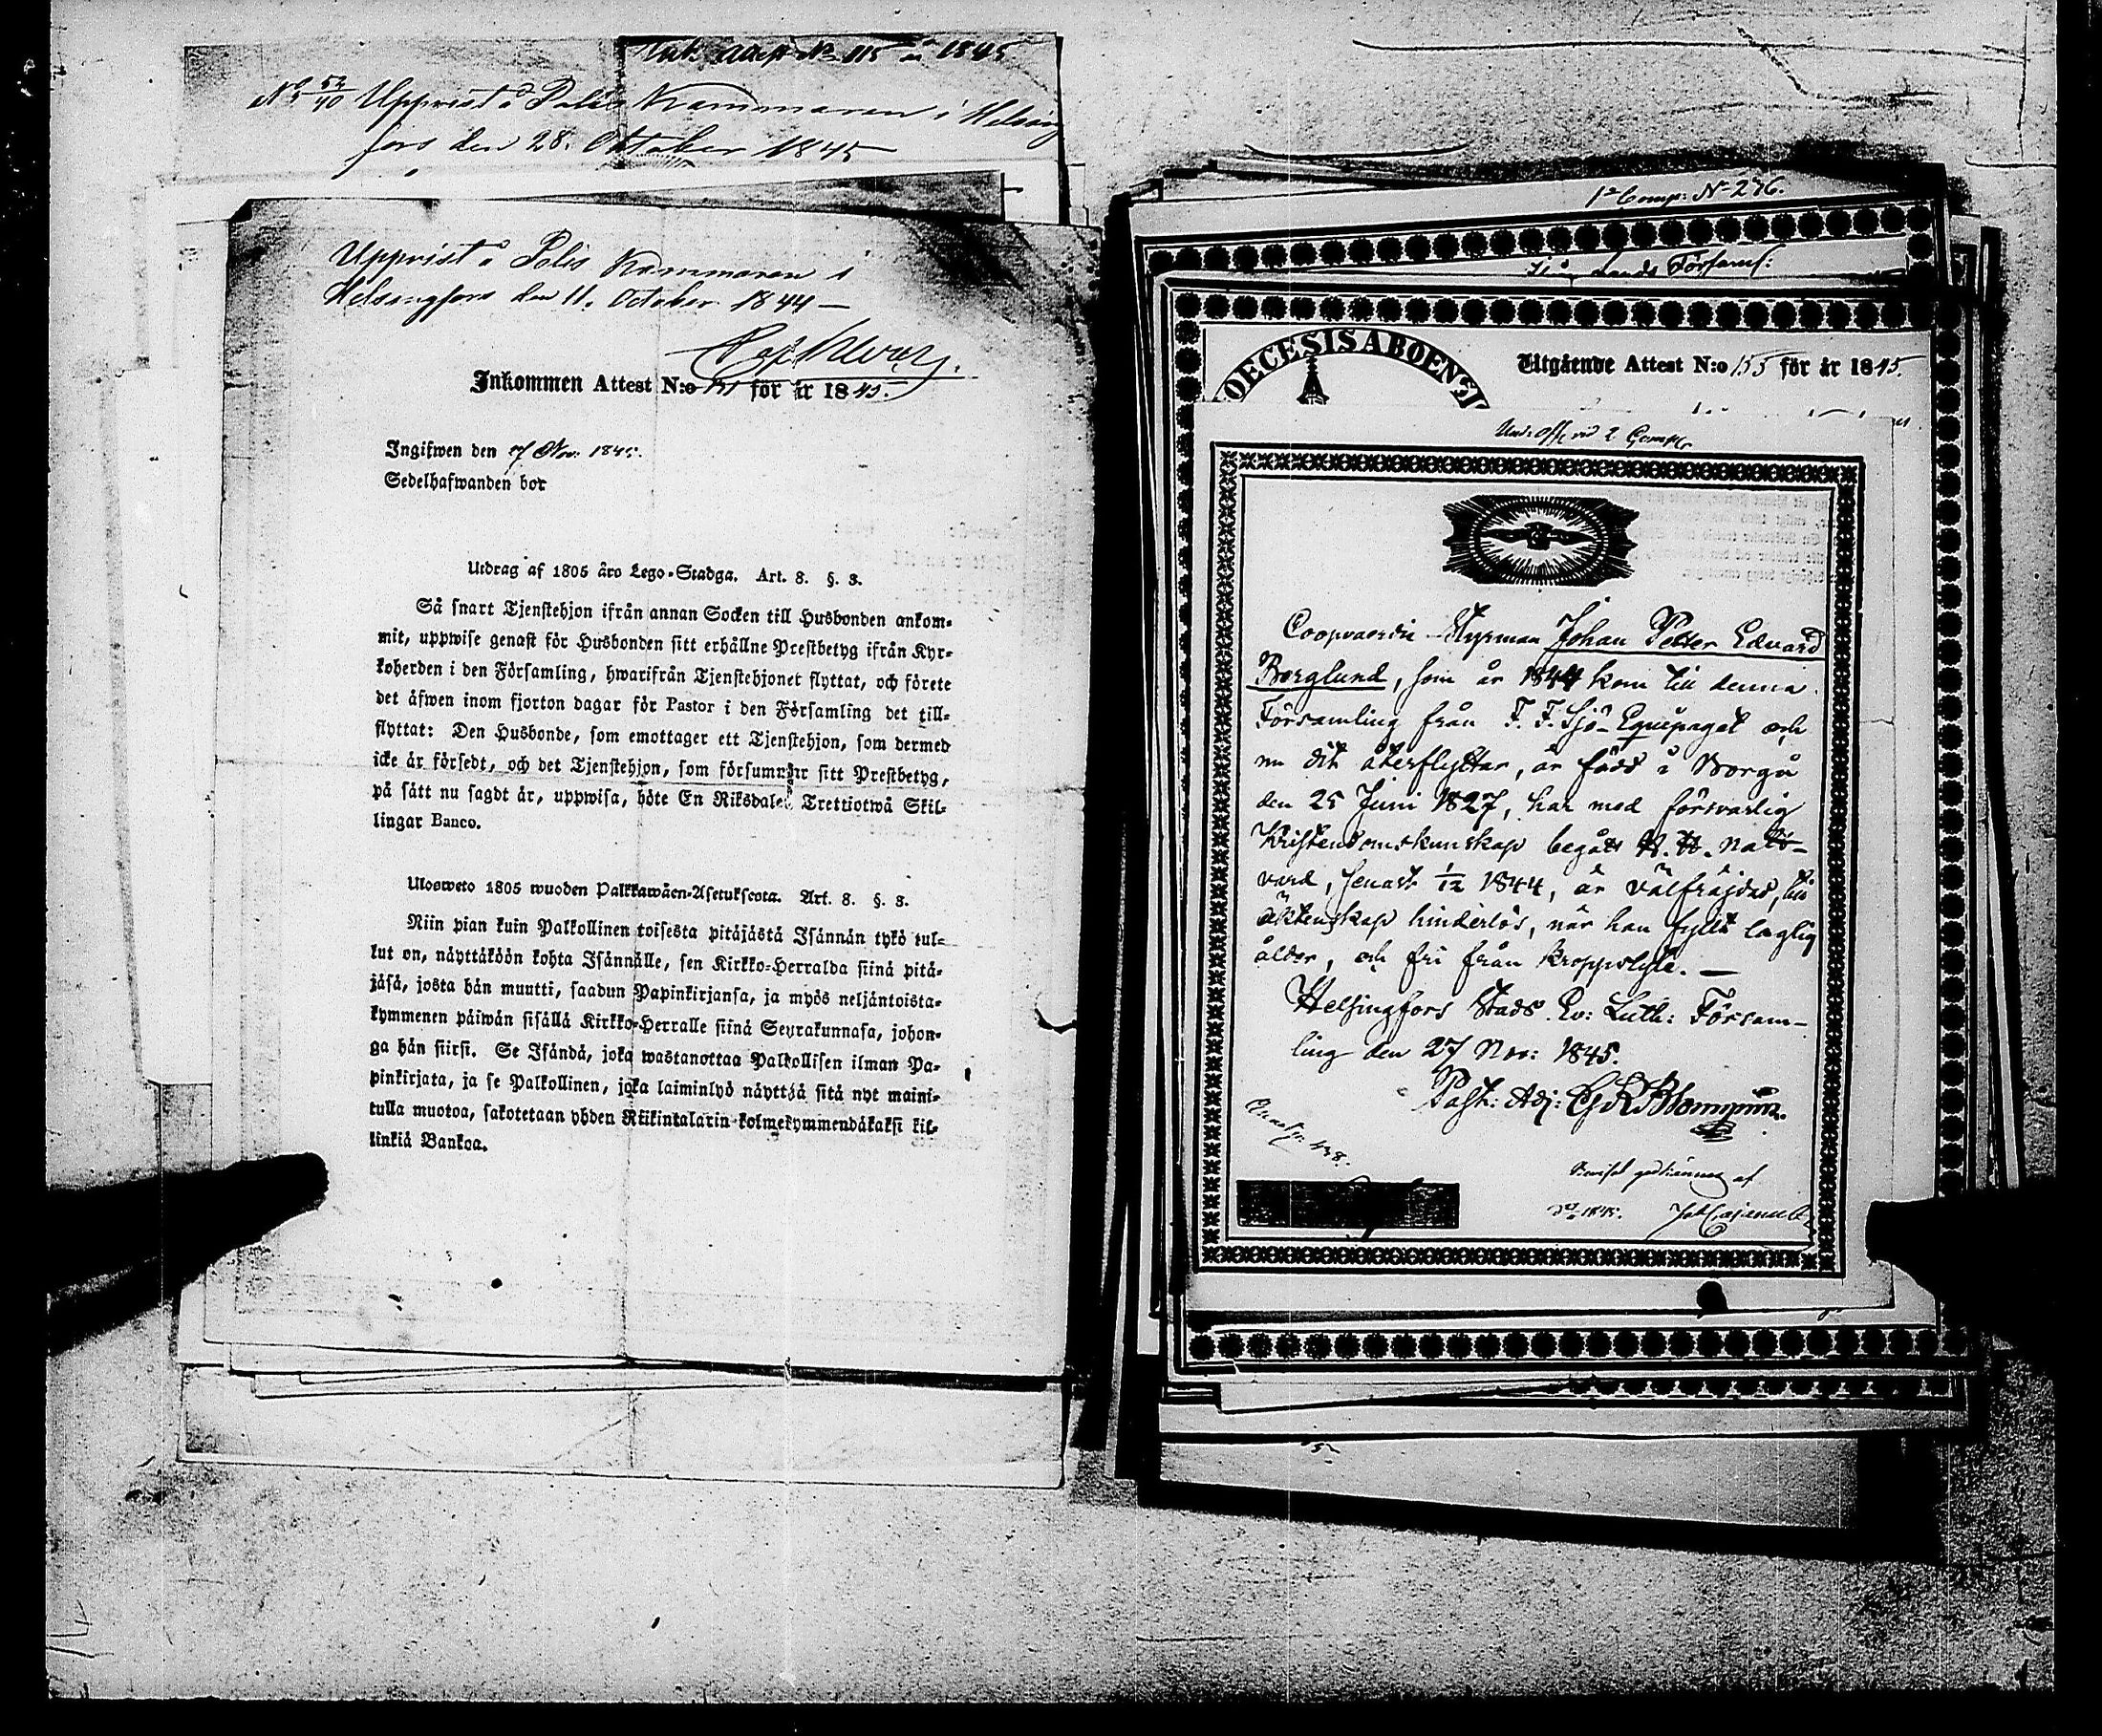 Ink. Attest No 115 år 1845
No 52/40 Uppvist å Polis Kammaren i Helsing
fors den 28. Oktober 1845
Uppvist å Polis Kammaren i
Helsingfors den 11. October 1844
Inkommen Attest N:o för år 1845.
Ingifwen den 7 Nov. 1845.
Sedelhafwanden bor
Utdrag af 1805 års Lego-Stadga. Art. 8. §. 3.
Så snart Tjenstehjon ifrån annan Socken till Husbonden ankom-
mit, uppwise genast för Husbonden sitt erhållne Prestbetyg ifrån Kyr-
koherden i den Församling, hwarifrån Tjenstehjonet flyttat, och förete
det äfwen inom fjorton dagar för Pastor i den Församling det till-
flyttat: Den Husbonde, som emottager ett Tjenstehjon, som dermed
icke är försedt, och det Tjenstehjon, som försummar sitt Prestbetyg,
på sätt nu sagdt är, uppwisa, böte En Riksdaler Trettiotwå Skil-
lingar Banco.
Ulosweto 1805 wuoden Palkkawäen-Asetuksesta. Art. 8. §. 3.
Niin pian kuin Palkollinen toisesta pitäjästä Isännän tykö tul-
lut on, näyttäköön kohta Isännälle, sen Kirkko-Herralda siinä pitä-
jäsä, josta hän muutti, saadun Papinkirjansa, ja myös neljäntoista-
kymmenen päiwän sisällä Kirkko-Herralle siinä Seurakunnasa, johon-
ga hän siirsi. Se Isändä, joka wastanottaa Palkollisen ilman Pa-
pinkirjata, ja se Palkollinen, joka laiminlyö näyttää sitä nyt maini-
tulla muotoa, sakotetaan yhden Riikintalarin kolmekymmendäkaksi kil-
linkiä Bankoa.
1a Comp: No 276.
Församl:
OECESIS ABOENSI
Utgående Attest N:o 155 för år 1845.
Und: off. vid 2 Comp:
Coopvaerdie Styrman Johan Petter Eduard
Borglund, som år 1844 kom till denna
Församling från F. F. Sjö-Equipaget och
nu dit återflyttar, är född i Borgå
den 25 Juni 1827, har med försvarlig
Kristendomskunskap begått H. H. Natt-
vard, senast 1/12 1844, är välfräjdad, till
äktenskap hinderlös, när han fyllt laglig
ålder, och fri från kroppslyte. —
Helsingfors Stads Ev: Luth: Försam-
ling den 27 Nov: 1845.
Past: Adj:
1845.